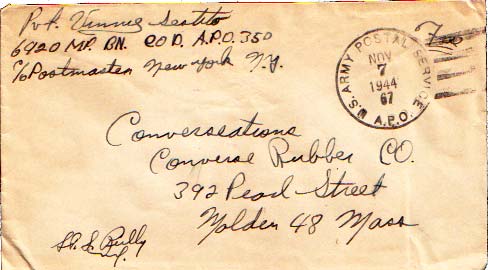 Pvt. Vinnie Scatito
6920 MP. BN. CO D. A.P.O. 350
c/o Postmaster New York N.Y.
Free
U.S. ARMY POSTAL SERVICE
NOV
7
1944
67
A.P.O.
Converseations
Converse Rubber CO.
392 Pearl Street
Molden 48 Mass